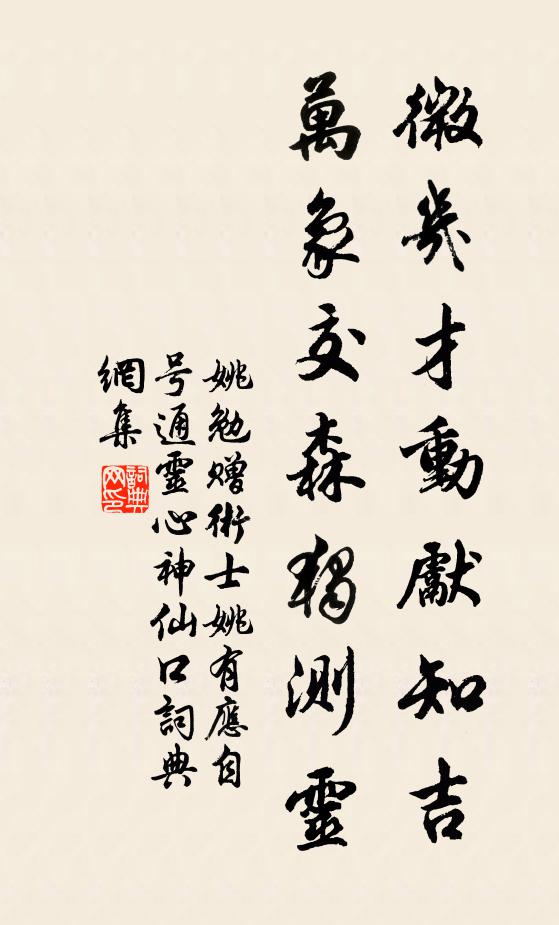 微幾才動獻知吉
萬象交森獨測靈
姚勉贈術士姚有應自
号通靈心神仙口詞典
網集
詞典
网印